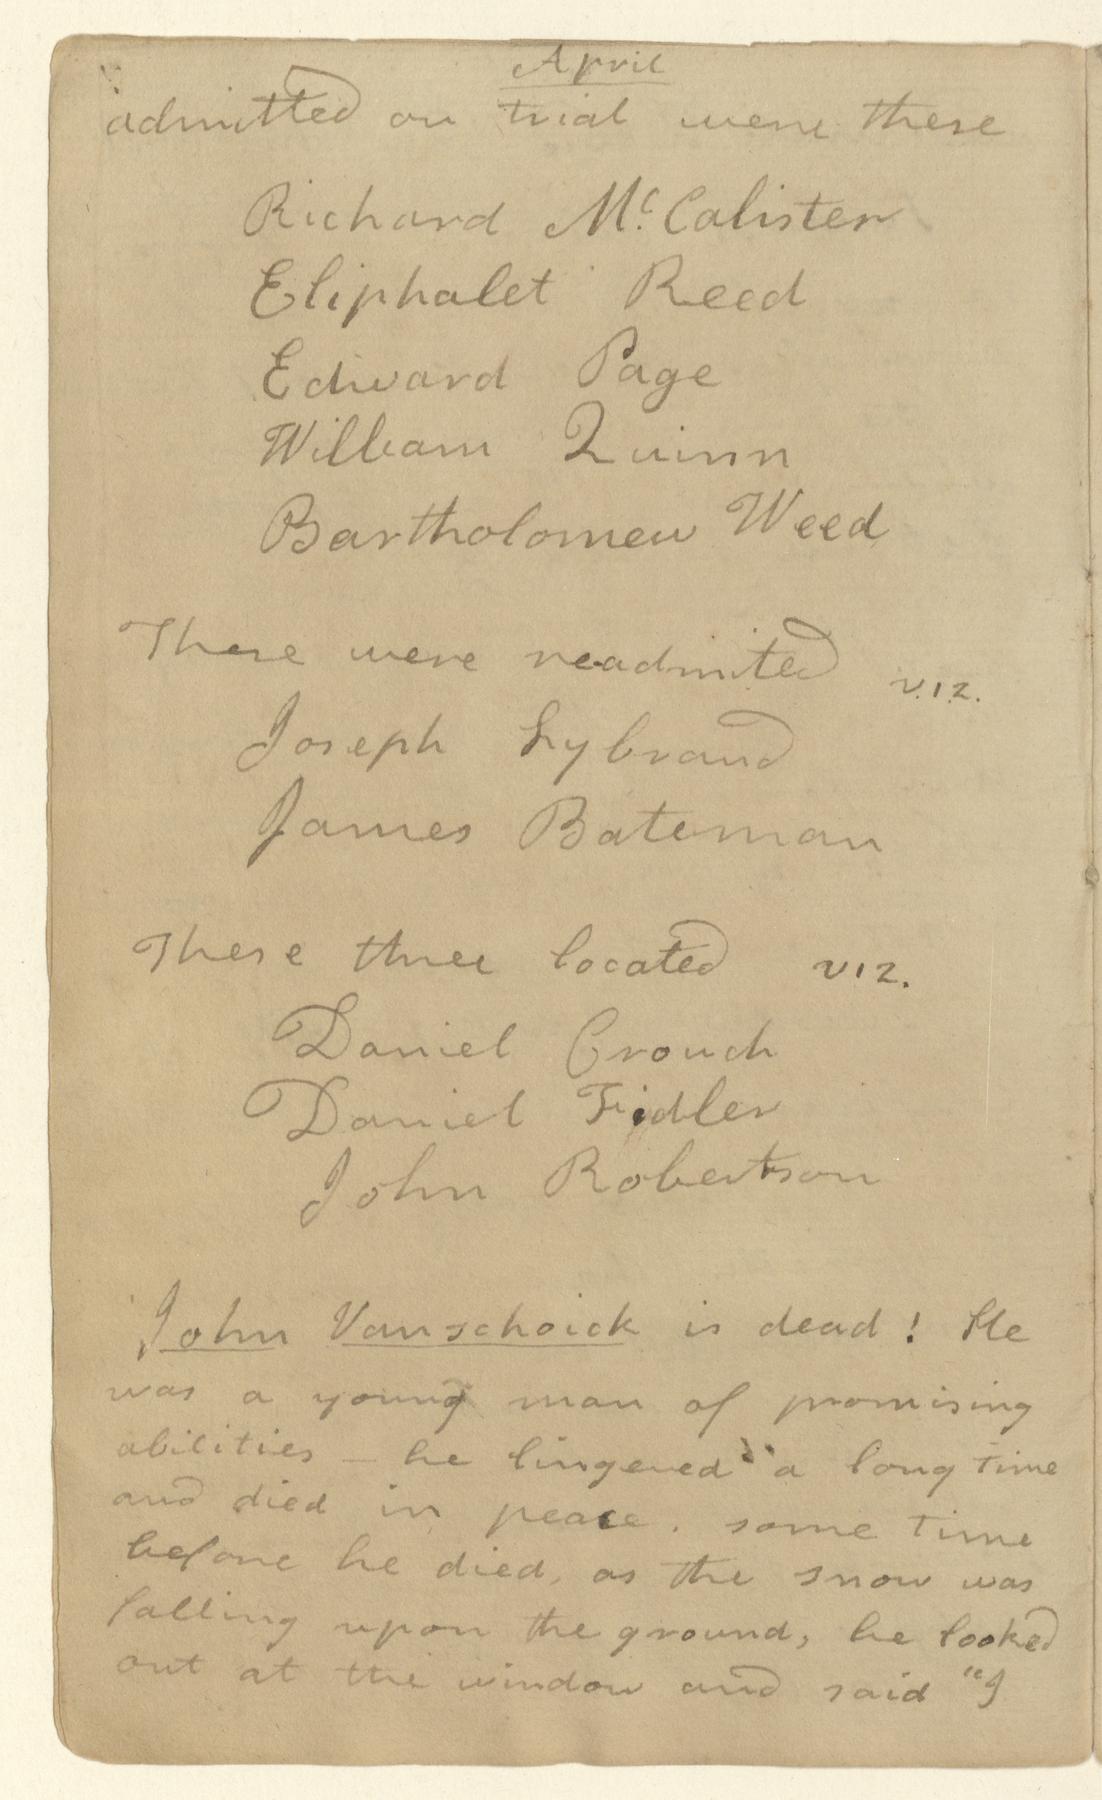 April
admitted on trial were these
Richard Mc. Calister
Eliphalet Reed
Edward Page
William Quinn
Bartholomew Weed
These were readmited viz.
Joseph Lybrand
James Bateman
These three located viz.
Daniel Crouch
Daniel Fidler
John Robertson
John Vanschoick is dead! He
was a young man of promising
abilities – he lingered a long time
and died in peace. some time
before he died, as the snow was
falling upon the ground, he looked
out at the window and said "I